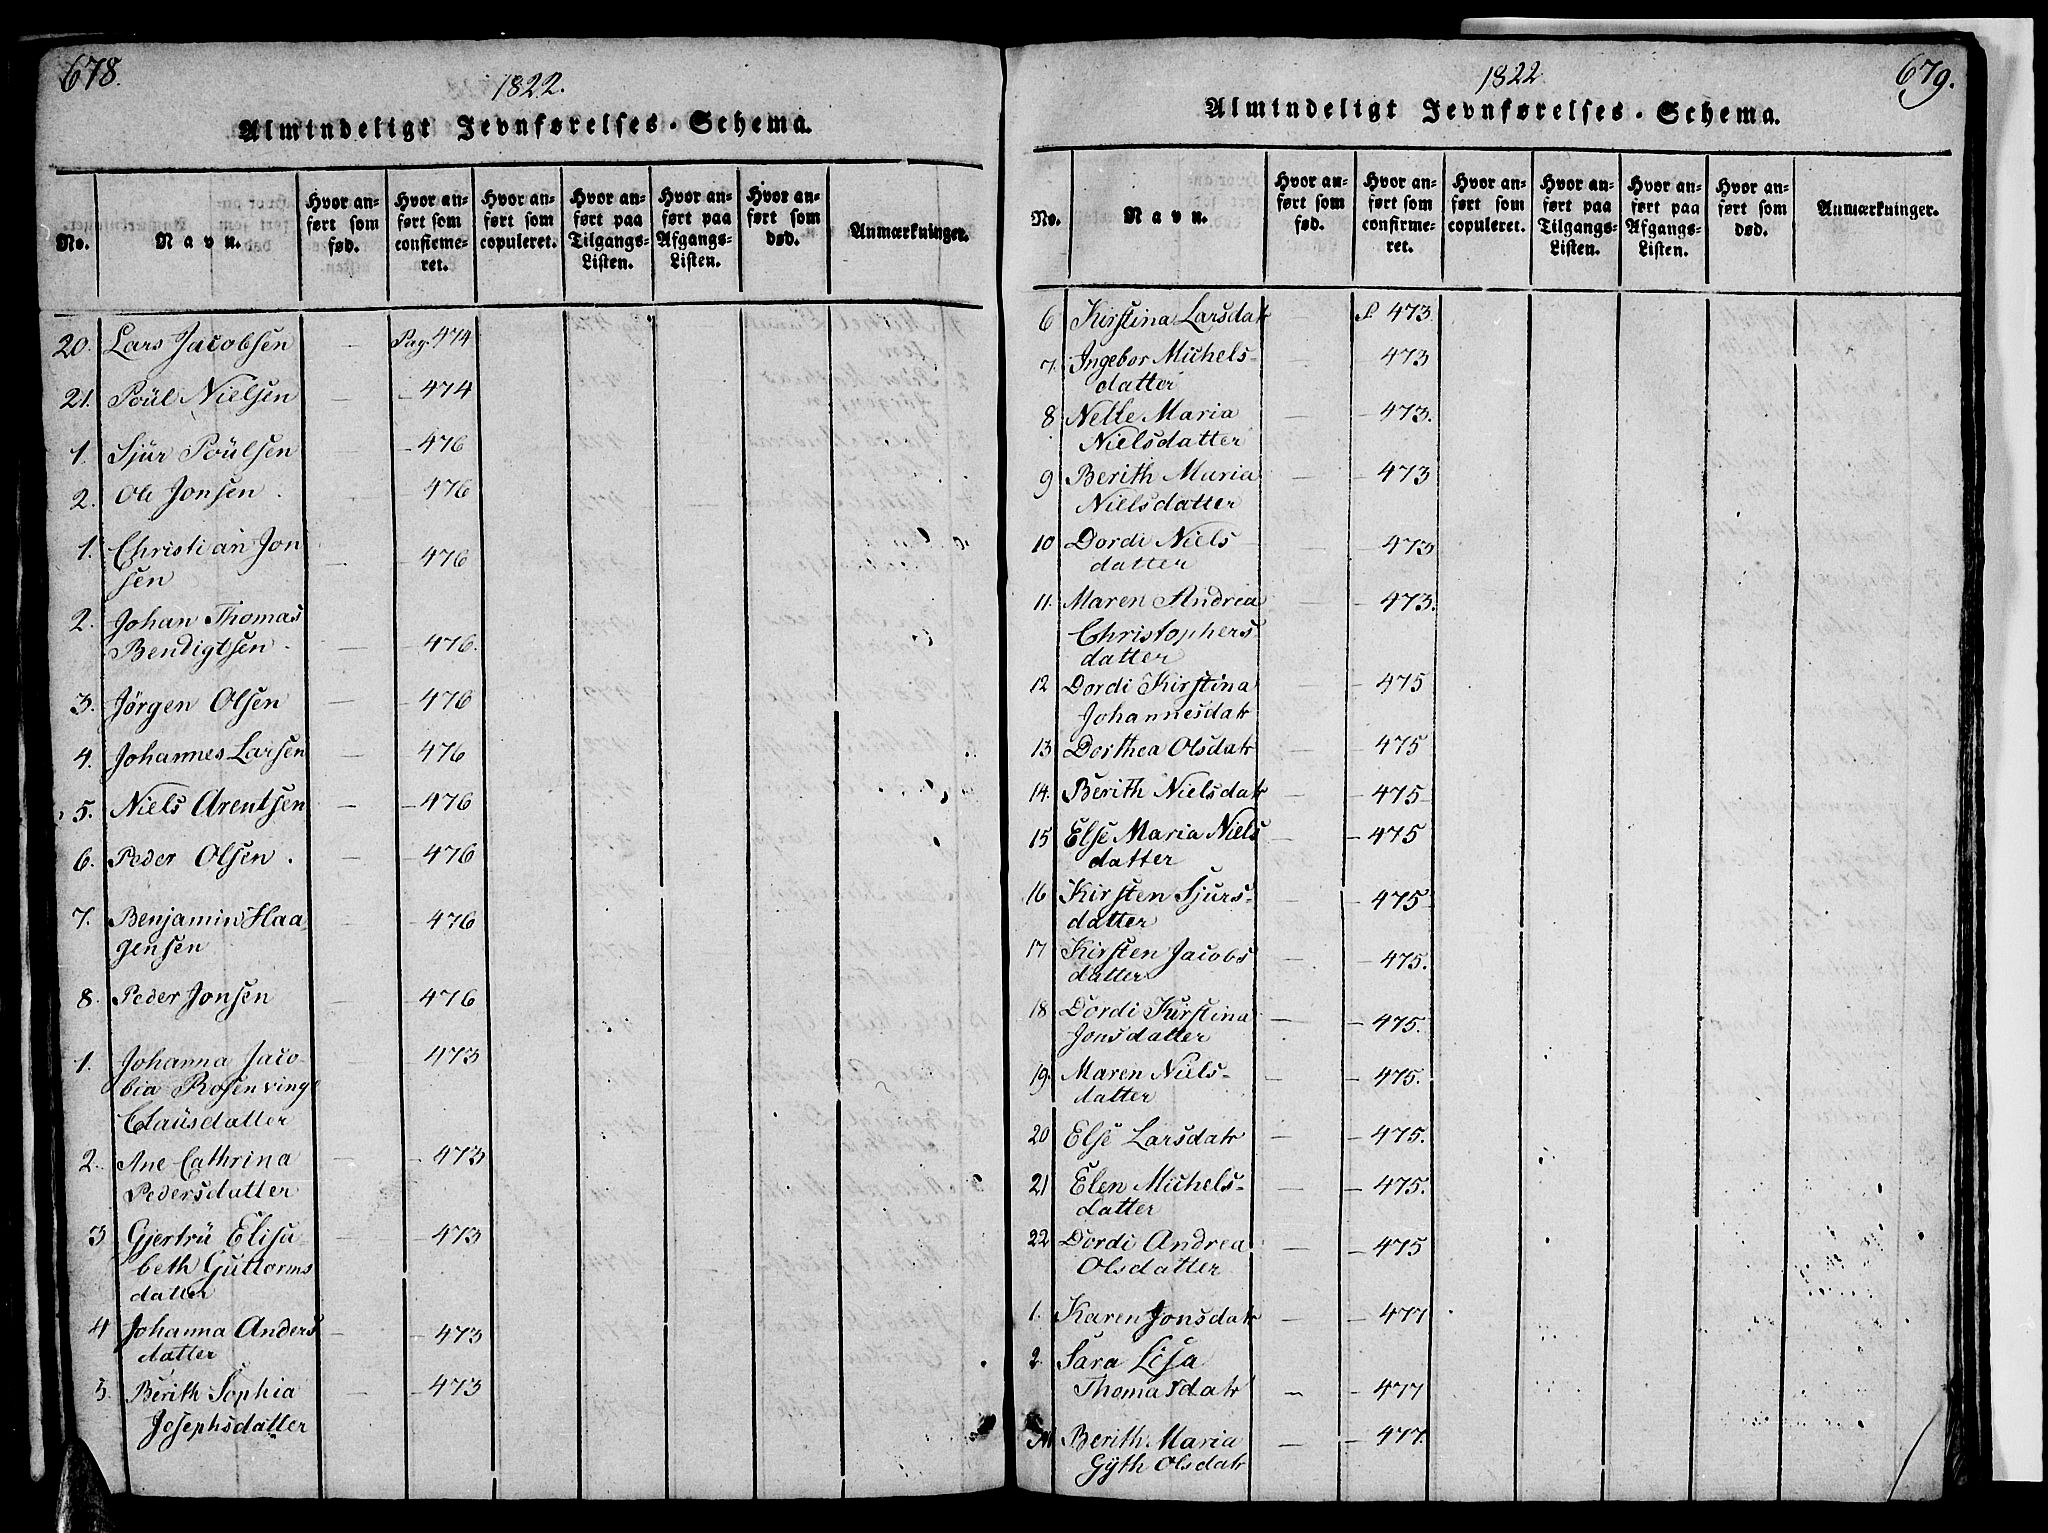 678.
1822.
Almindeligt Jevnførelses-Schema.
No. Navn. Hvor anført som fød. Hvor anført som confirmeret. Hvor anført som copuleret. Hvor anført paa Tilgangs-Listen. Hvor anført paa Afgangs-Listen. Hvor anført som død. Anmærkninger.
20. Lars Jacobsen — Pag. 474
21. Poül Nielsen — — 474
1. Sjur Poülsen — — 476
2. Ole Jonsen . — 476
1. Christian Jon
sen — — 476
2. Johan Thomas
Bendigtsen — — 476.
3. Jörgen Olsen — — 476
4. Johannes Larsen — 476
5. Niels Arentsen — — 476
6. Peder Olsen . — — 476
7. Benjamin Haa-
gensen — — 476
8. Peder Jonsen — — 476
1. Johanna Jaco — — 473
bia Rosenvinge
Claüsdatter
2. Ane Cathrina — — 473
Pedersdatter
3 Gjertrü Elisa — — 473
beth Güttorms
datter
4 Johanna Anders — — 473
datter
5. Berith Sophia — — 473
Josephsdatter
1822
679.
Almindeligt Jevnførelses-Schema.
No. Navn. Hvor anført som fød. Hvor anført som confirmeret. Hvor anført som copuleret. Hvor anført paa Tilgangs-Listen. Hvor anført paa Afgangs-Listen. Hvor anført som død. Anmærkninger.
6 Kirstina Larsdatr — P 473.
7. Ingebor Michels- — 473
datter
8 Nelle Maria — — 473.
Nielsdatter
9 Berith Maria — — 473
Nielsdatter
10 Dordi Niels — — 473
datter
11. Maren Andrea — — 473.
Christophers
datter
12 Dordi Kirstina — — 475
Johannesdatr
13 Dorthea Olsdatr — — 475
14. Berith Nielsdatr — — 475
15 Else Maria Niels — — 475
datter
16 Kirsten Sjurs- — — 475
datter
17 Kirsten Jacobs — — 475.
datter
18 Dordi Kirstina — — 475.
Jonsdatter
19. Maren Niels- — — 475.
datter
20 Else Larsdatr — — 475.
21 Elen Michels- — — 475.
datter
22 Dordi Andrea — — 475
Olsdatter
1. Karen Jonsdatr — — 477
2. Sara Lisa
Thomasdatr — — 477
Berith Maria — — 477.
Gÿth Olsdatr